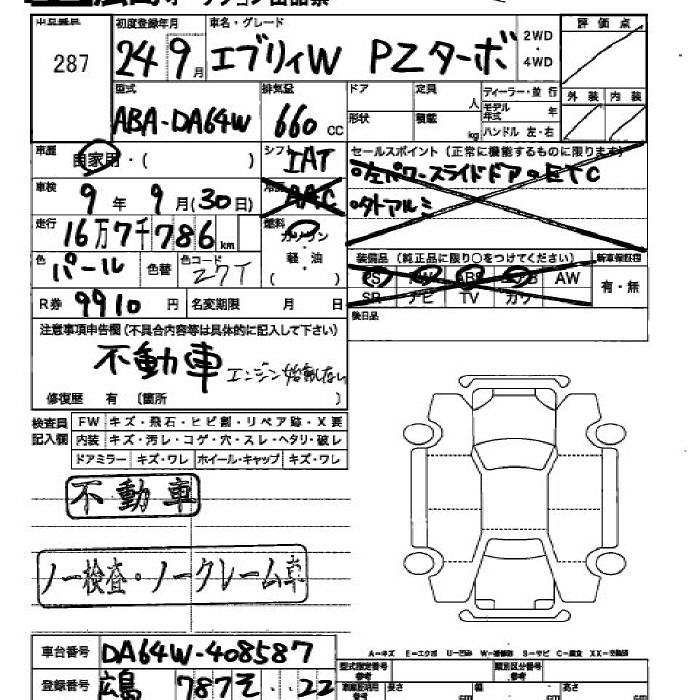 287
初度登録年月 車名・グレード 2WD・4WD 評価点
24 9月 エブリィW PZターボ
型式 排気量 ドア 定員 人 ディーラー・並行 外装 内装
ABA-DA64W 660cc 形状 積載 kg モデル年式 年
ハンドル 左・右
車歴 自家用・( ) シフト IAT セールスポイント(正常に機能するものに限ります)
車検 9年 9月(30日) AAC ・左パワースライドドア ・ETC
・外アルミ
走行 16万7千786km 燃料 ガソリン・軽・油 ( )
色 パール 色替 色コード Z7T 装備品(純正品に限り○をつけてください) 新車保証書
PS PW ABS エアB AW 有・無
SR ナビ TV カワ
R券 9910円 名変期限 月 日 後日品
注意事項申告欄(不具合内容等は具体的に記入して下さい)
不動車 エンジン始動しない
修復歴 有 〔箇所 〕
検査員記入欄 FW キズ・飛石・ヒビ割・リペア跡・X要
内装 キズ・汚レ・コゲ・穴・スレ・ヘタリ・破レ
ドアミラー キズ・ワレ ホイール・キャップ キズ・ワレ
不動車
ノー検査・ノークレーム車
A-キズ E-エクボ U-凹み W-補修跡 S-サビ C-腐食 XX-交換済
車台番号 DA64W-408587 型式指定番号 参考 類別区分番号 参考
登録番号 広島 787 そ ・・22 長さ cm 幅 cm 高さ cm